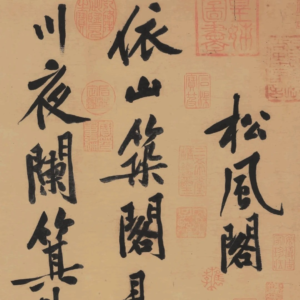 松風閣
依山築閣見
川夜闌箕